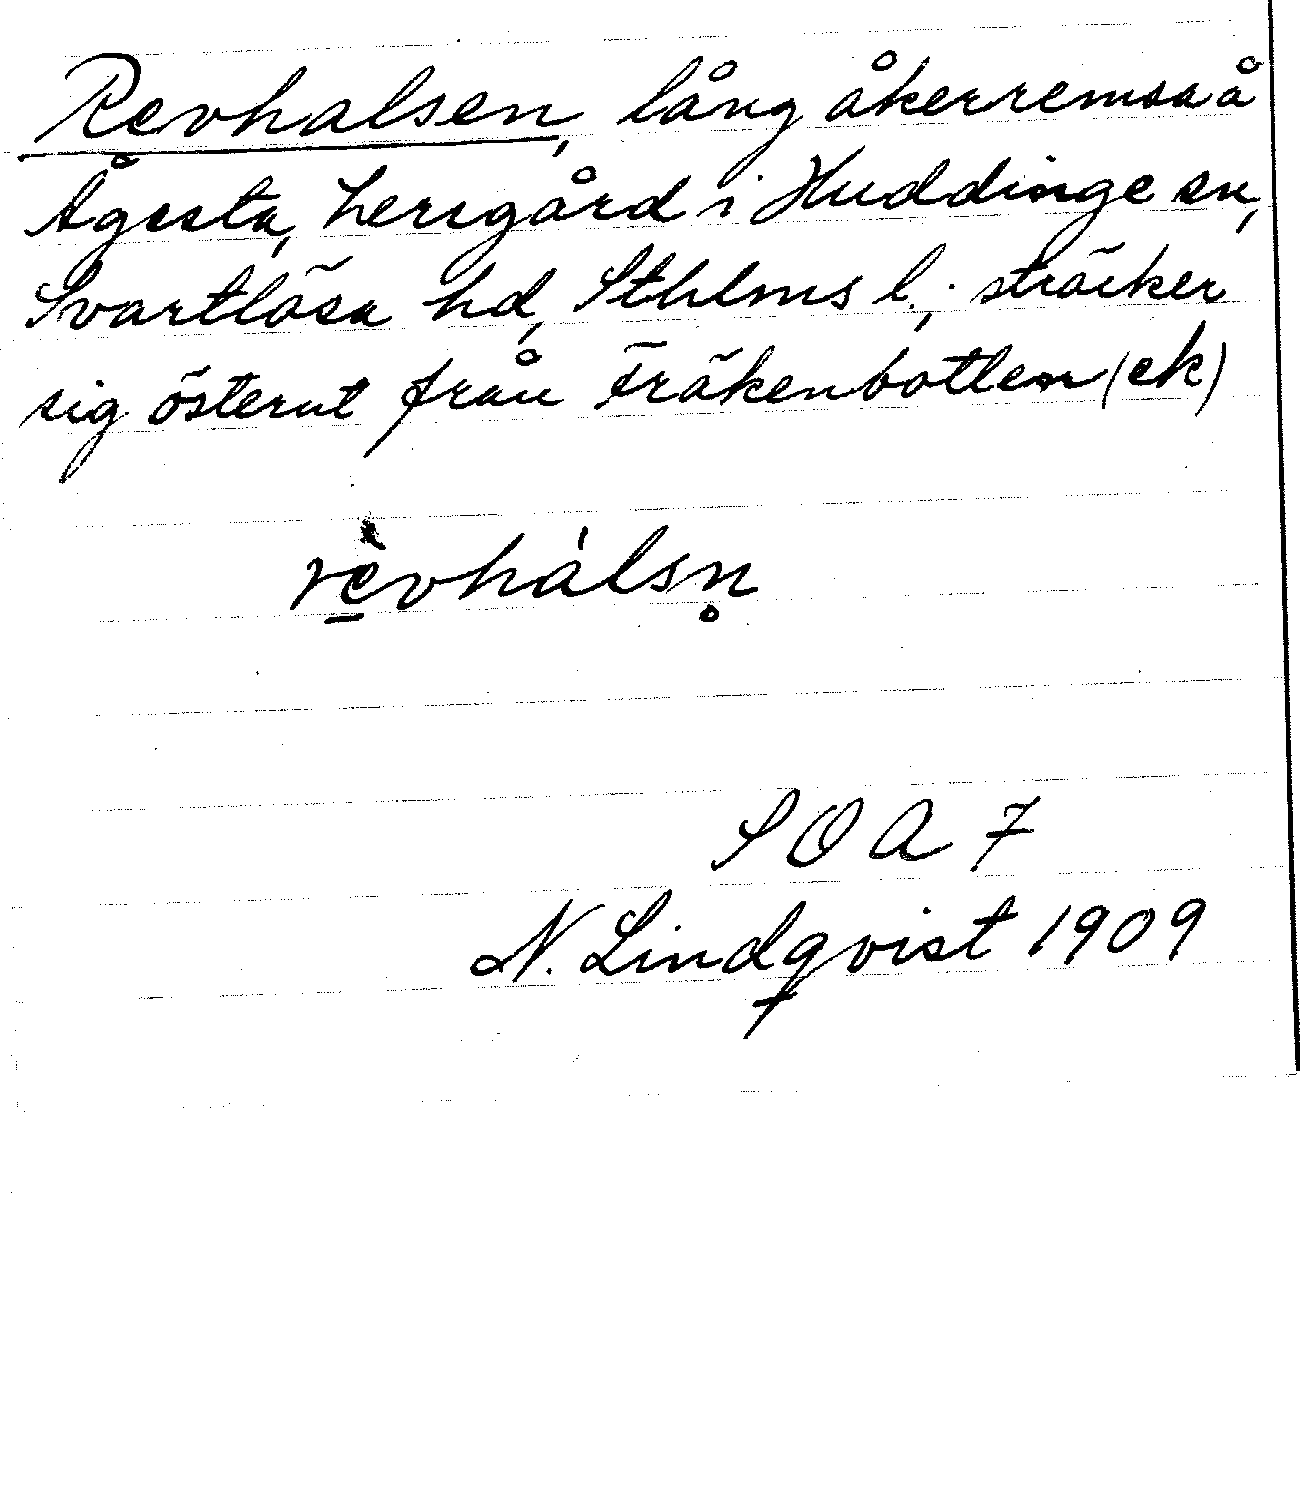 Revhalsen, lång åkerremsa å
Ågesta, herrgård i Huddinge sn,
Svartlösa hd, Sthlms l.; sträcker
sig österut från Fräkenbotten (ek)
rè̱vhálsn̥
SOA 7
N. Lindqvist 1909